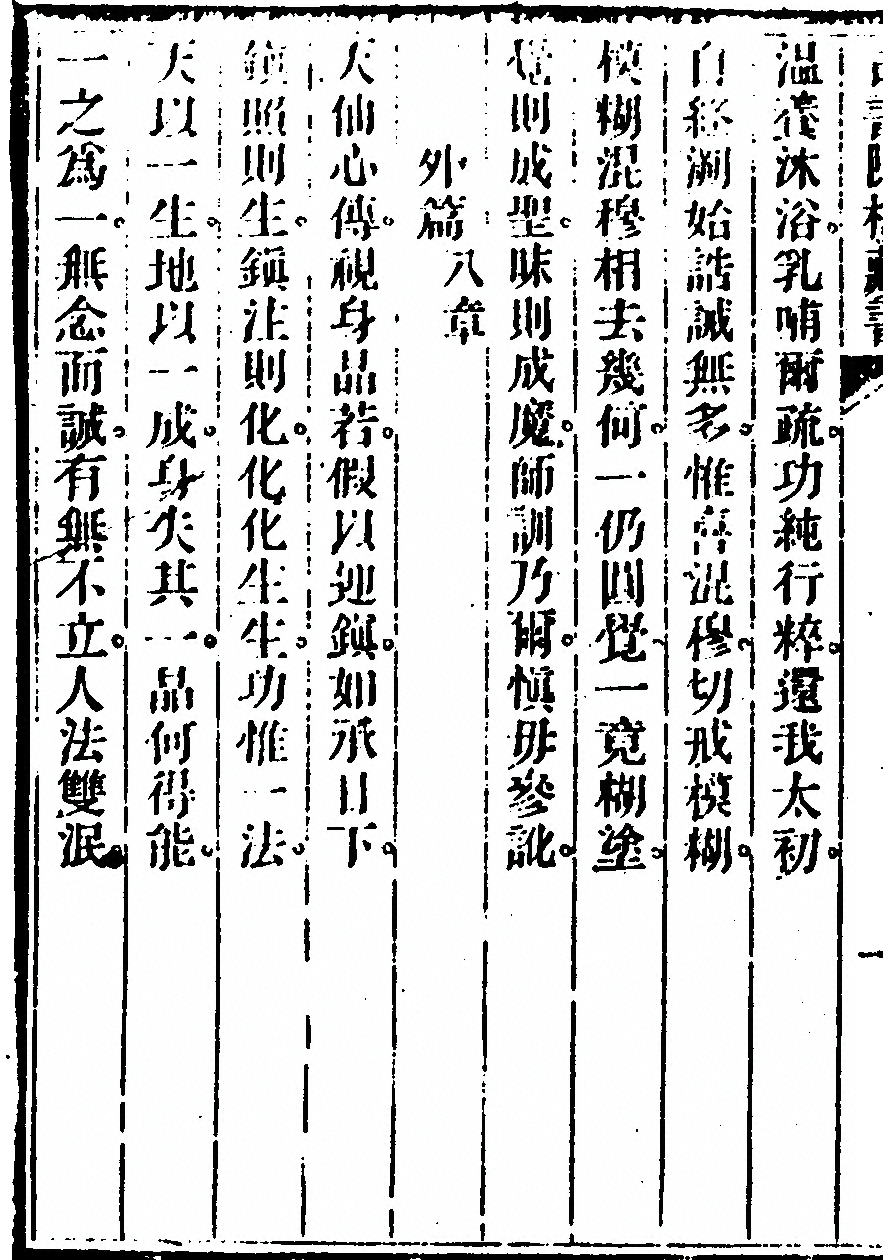 溫養沐浴。乳哺爾疏。功純行粹。還我太初。
自經溯始。誥誡無多。惟喜混穆。切戒模糊。
模糊混穆。相去幾何。一仍圓覺。一竟糊塗。
覺則成聖。昧則成魔。師訓乃爾。愼毋參訛。
外篇八章
天仙心傳。視身品若。假以迎鎭。如承日下。
鎭照則生。鎭注則化。化化生生。功惟一法。
天以一生。地以一成。身失其一。品何得能。
一之爲一。無念而誠。有無不立。人法雙泯。